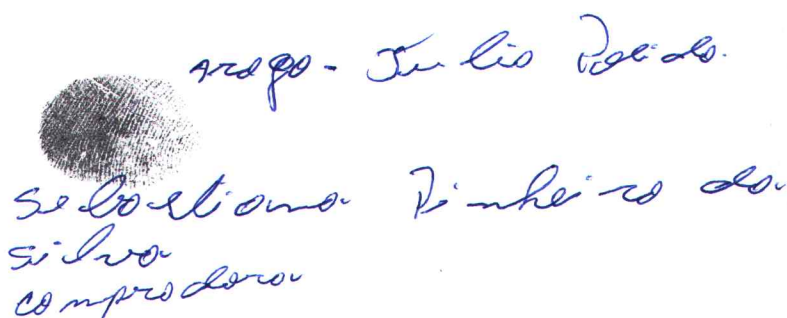 Arogo - Julio
Sebastiana Pinheiro da
Silva
compradora